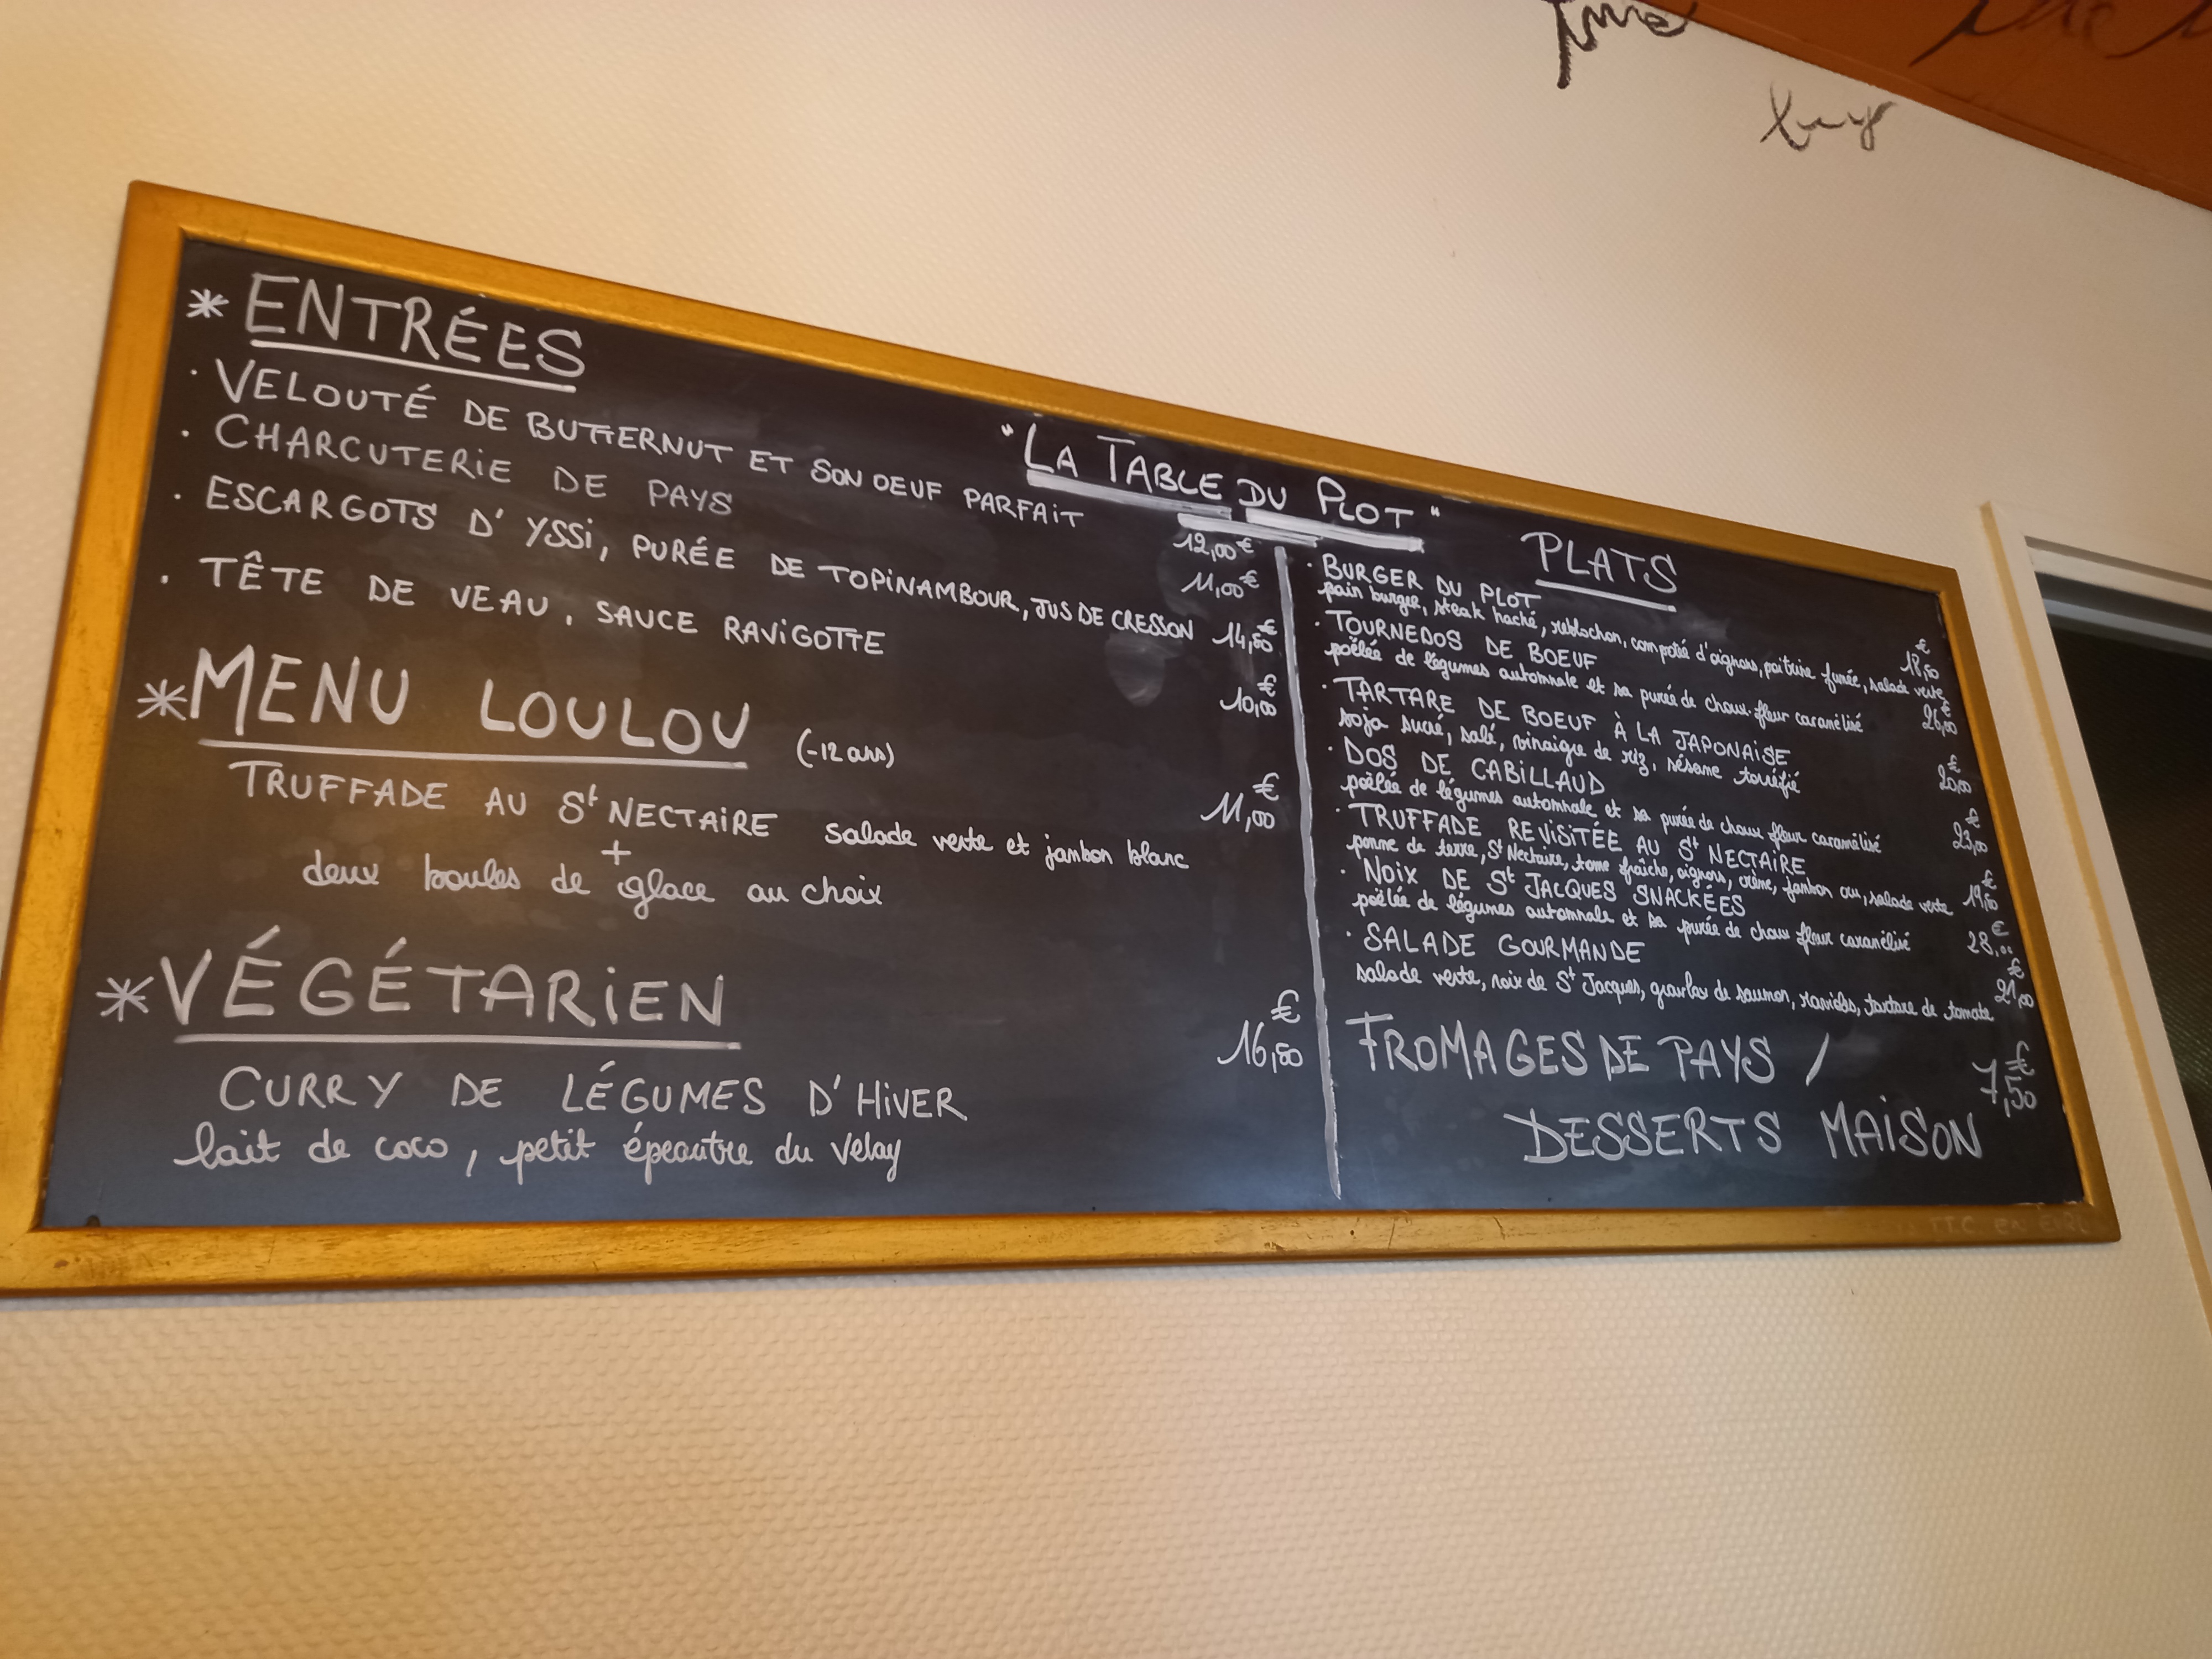 "LA TABLE DU PLOT"
* ENTRÉES
· VELOUTÉ DE BUTTERNUT ET SON OEUF PARFAIT 12,00€
· CHARCUTERIE DE PAYS 11,00€
· ESCARGOTS D'YSSI, PURÉE DE TOPINAMBOUR, JUS DE CRESSON 14,50€
· TÊTE DE VEAU, SAUCE RAVIGOTTE 10,00€
* MENU LOULOU (-12 ans) 11,00€
TRUFFADE AU St NECTAIRE salade verte et jambon blanc
+
deux boules de glace au choix
* VÉGÉTARIEN 16,50€
CURRY DE LÉGUMES D'HIVER
lait de coco, petit épeautre du Velay
PLATS
· BURGER DU PLOT 18,50€
pain burger, steak haché, reblochon, compotée d'oignons, poitrine fumée, salade verte
· TOURNEDOS DE BOEUF 26,00€
poêlée de légumes automnale et sa purée de choux-fleur caramélisé
· TARTARE DE BOEUF À LA JAPONAISE 20,00€
soja sucré, salé, vinaigre de riz, sésame torréfié
· DOS DE CABILLAUD 23,00€
poêlée de légumes automnale et sa purée de choux fleur caramélisé
· TRUFFADE REVISITÉE AU St NECTAIRE 19,50€
pomme de terre, St Nectaire, tome fraîche, oignons, crème, jambon cru, salade verte
· NOIX DE St JACQUES SNACKÉES 28,00€
poêlée de légumes automnale et sa purée de choux fleur caramélisé
· SALADE GOURMANDE 21,00€
salade verte, noix de St Jacques, gravlax de saumon, ravioles, tartare de tomate
FROMAGES DE PAYS / 7,50€
DESSERTS MAISON